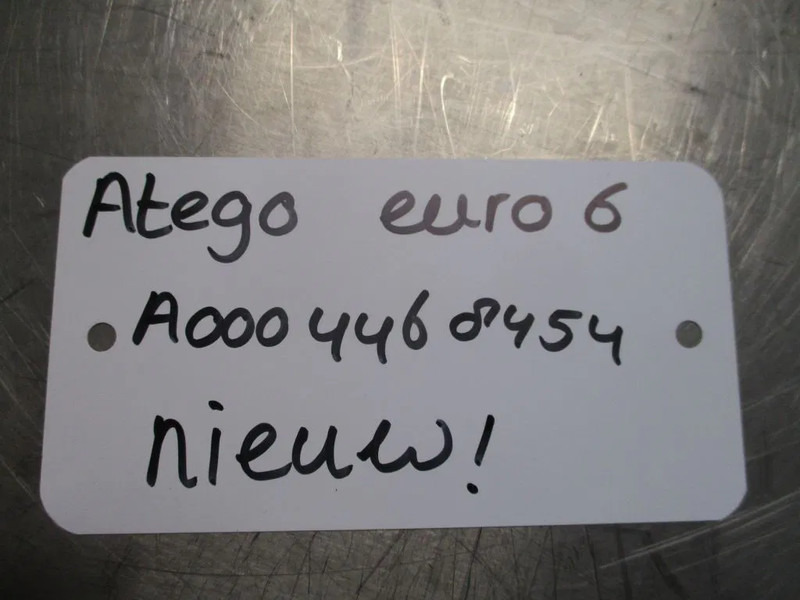 Atego euro 6
A000 446 8454
nieuw!